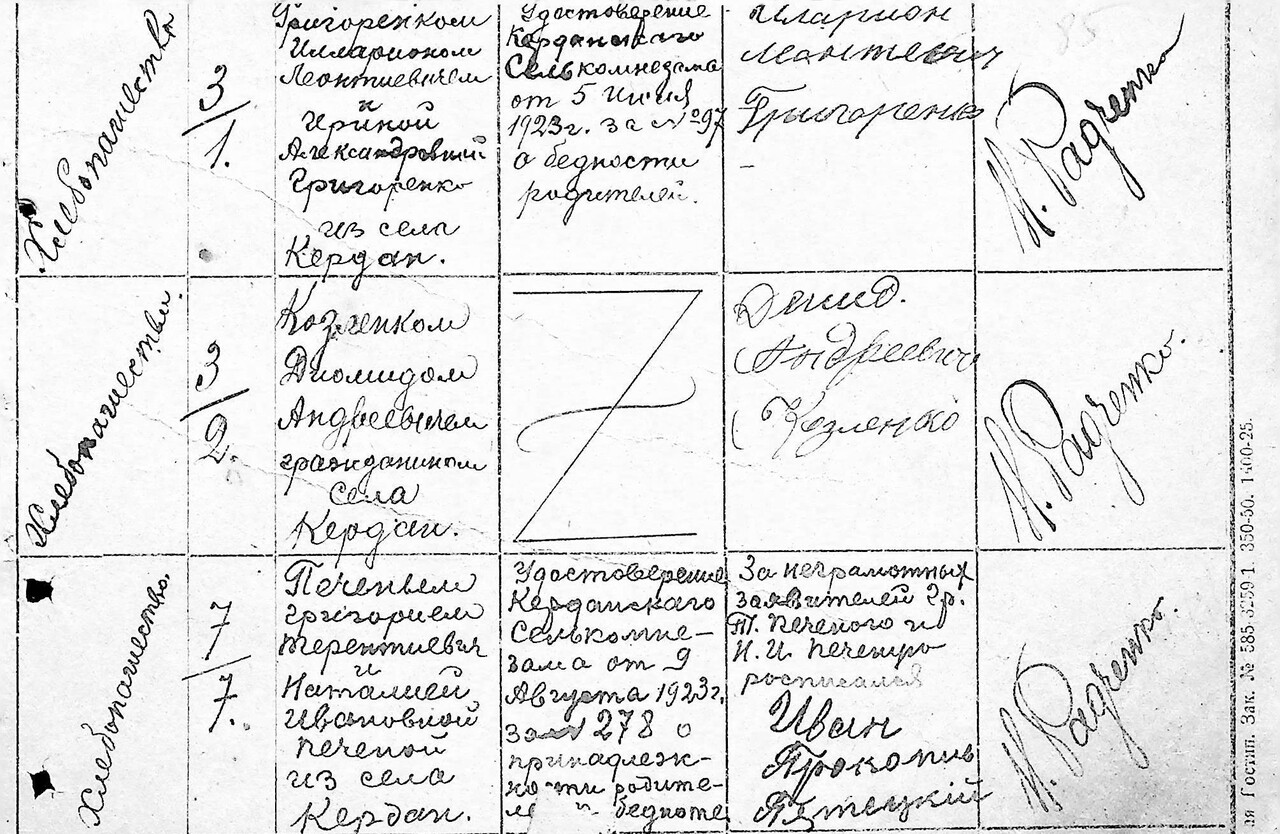 Хлебопашество
3/1.
Григоренком
Илларионом
Леонтиевичем
и
Ириной
Александровной
Григоренко
из села
Кердан.
Удостоверение
Керданскаго
Селькомнезама
от 5 Июня
1923г. за №97
о бедности
родителей.
Иларион
Леонтевич
Григоренко
М. Радченко
85
Хлебопашество.
3/2.
Козленком
Диомидом
Андреевичем
гражданином
села
Кердан.
Андреевич
Козленко
М. Радченко.
Хлебопашество.
7/7.
Печеным
Григорием
Терентиевич
и
Наталией
Ивановной
Печеной
из села
Кердан.
Удостоверение
Керданскаго
Селькомне-
зама от 9
Августа 1923г.
за № 278 о
принадлеж-
ности родите-
лей к бедноте
За неграмотных
заявителей гр.
Т. Печеного и
Н. И. Печеную
росписался
Иван
Прокопив
М. Радченко.
ия Гостип. Зак. № 585-3259 1 350-50. 1500-25.